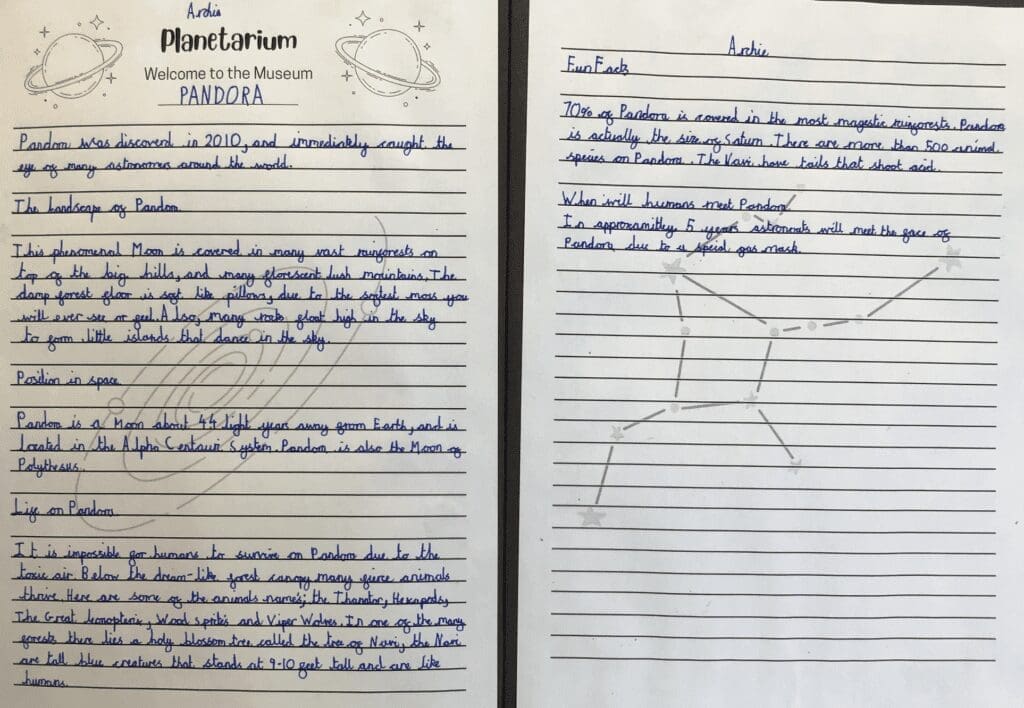 Archie
Planetarium
Welcome to the Museum
PANDORA
Pandora was discoverd in 2010, and immediately caught the
eye of many astronomers around the world.
The landscape of Pandora
This phenomenal Moon is covered in many vast rainforests on
top of the big hills, and many florescent lush mountains. The
damp forest floor is soft like pillows, due to the softest moss you
will ever see or feel. Also, many rocks float high in the sky
to form little islands that dance in the sky.
Position in space
Pandora is a Moon about 4.4 light years away from Earth, and is
located in the Alpha Centauri System. Pandora is also the Moon of
Polythesus.
Life on Pandora
It is impossible for humans to survive on Pandora due to the
toxic air. Below the dream-like forest canopy many fierce animals
thrive. Here are some of the animals names; the Thanator, Hexapods,
The Great Leonopterix, Wood sprites and Viper Wolves. In one of the many
forests there lies a holy blossom tree called the tree of Navi, the Navi
are tall blue creatures that stands at 9-10 feet tall and are like
humans.
Archie
Fun Facts
70% of Pandora is covered in the most magestic rainforests. Pandora
is actually the size of Saturn. There are more than 500 animal
species on Pandora. The Navi have tails that shoot acid.
When will humans meet Pandora
In approxamitley 5 years astronauts will meet the face of
Pandora due to a special gas mask.